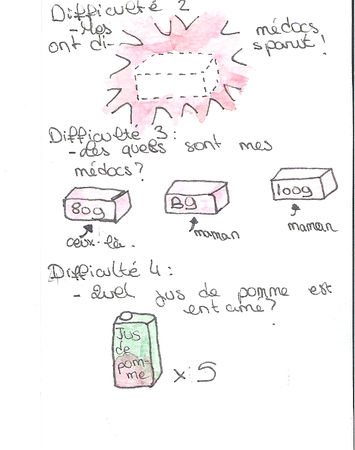 Difficulté 2
- Mes médocs
ont di- sparut!
Difficulté 3:
- Les quels sont mes
médocs?
80g
100g
ceux-là.
maman
maman
Difficulté 4:
- Quel jus de pomme est
entamé?
Jus
de
pom-
me
x 5